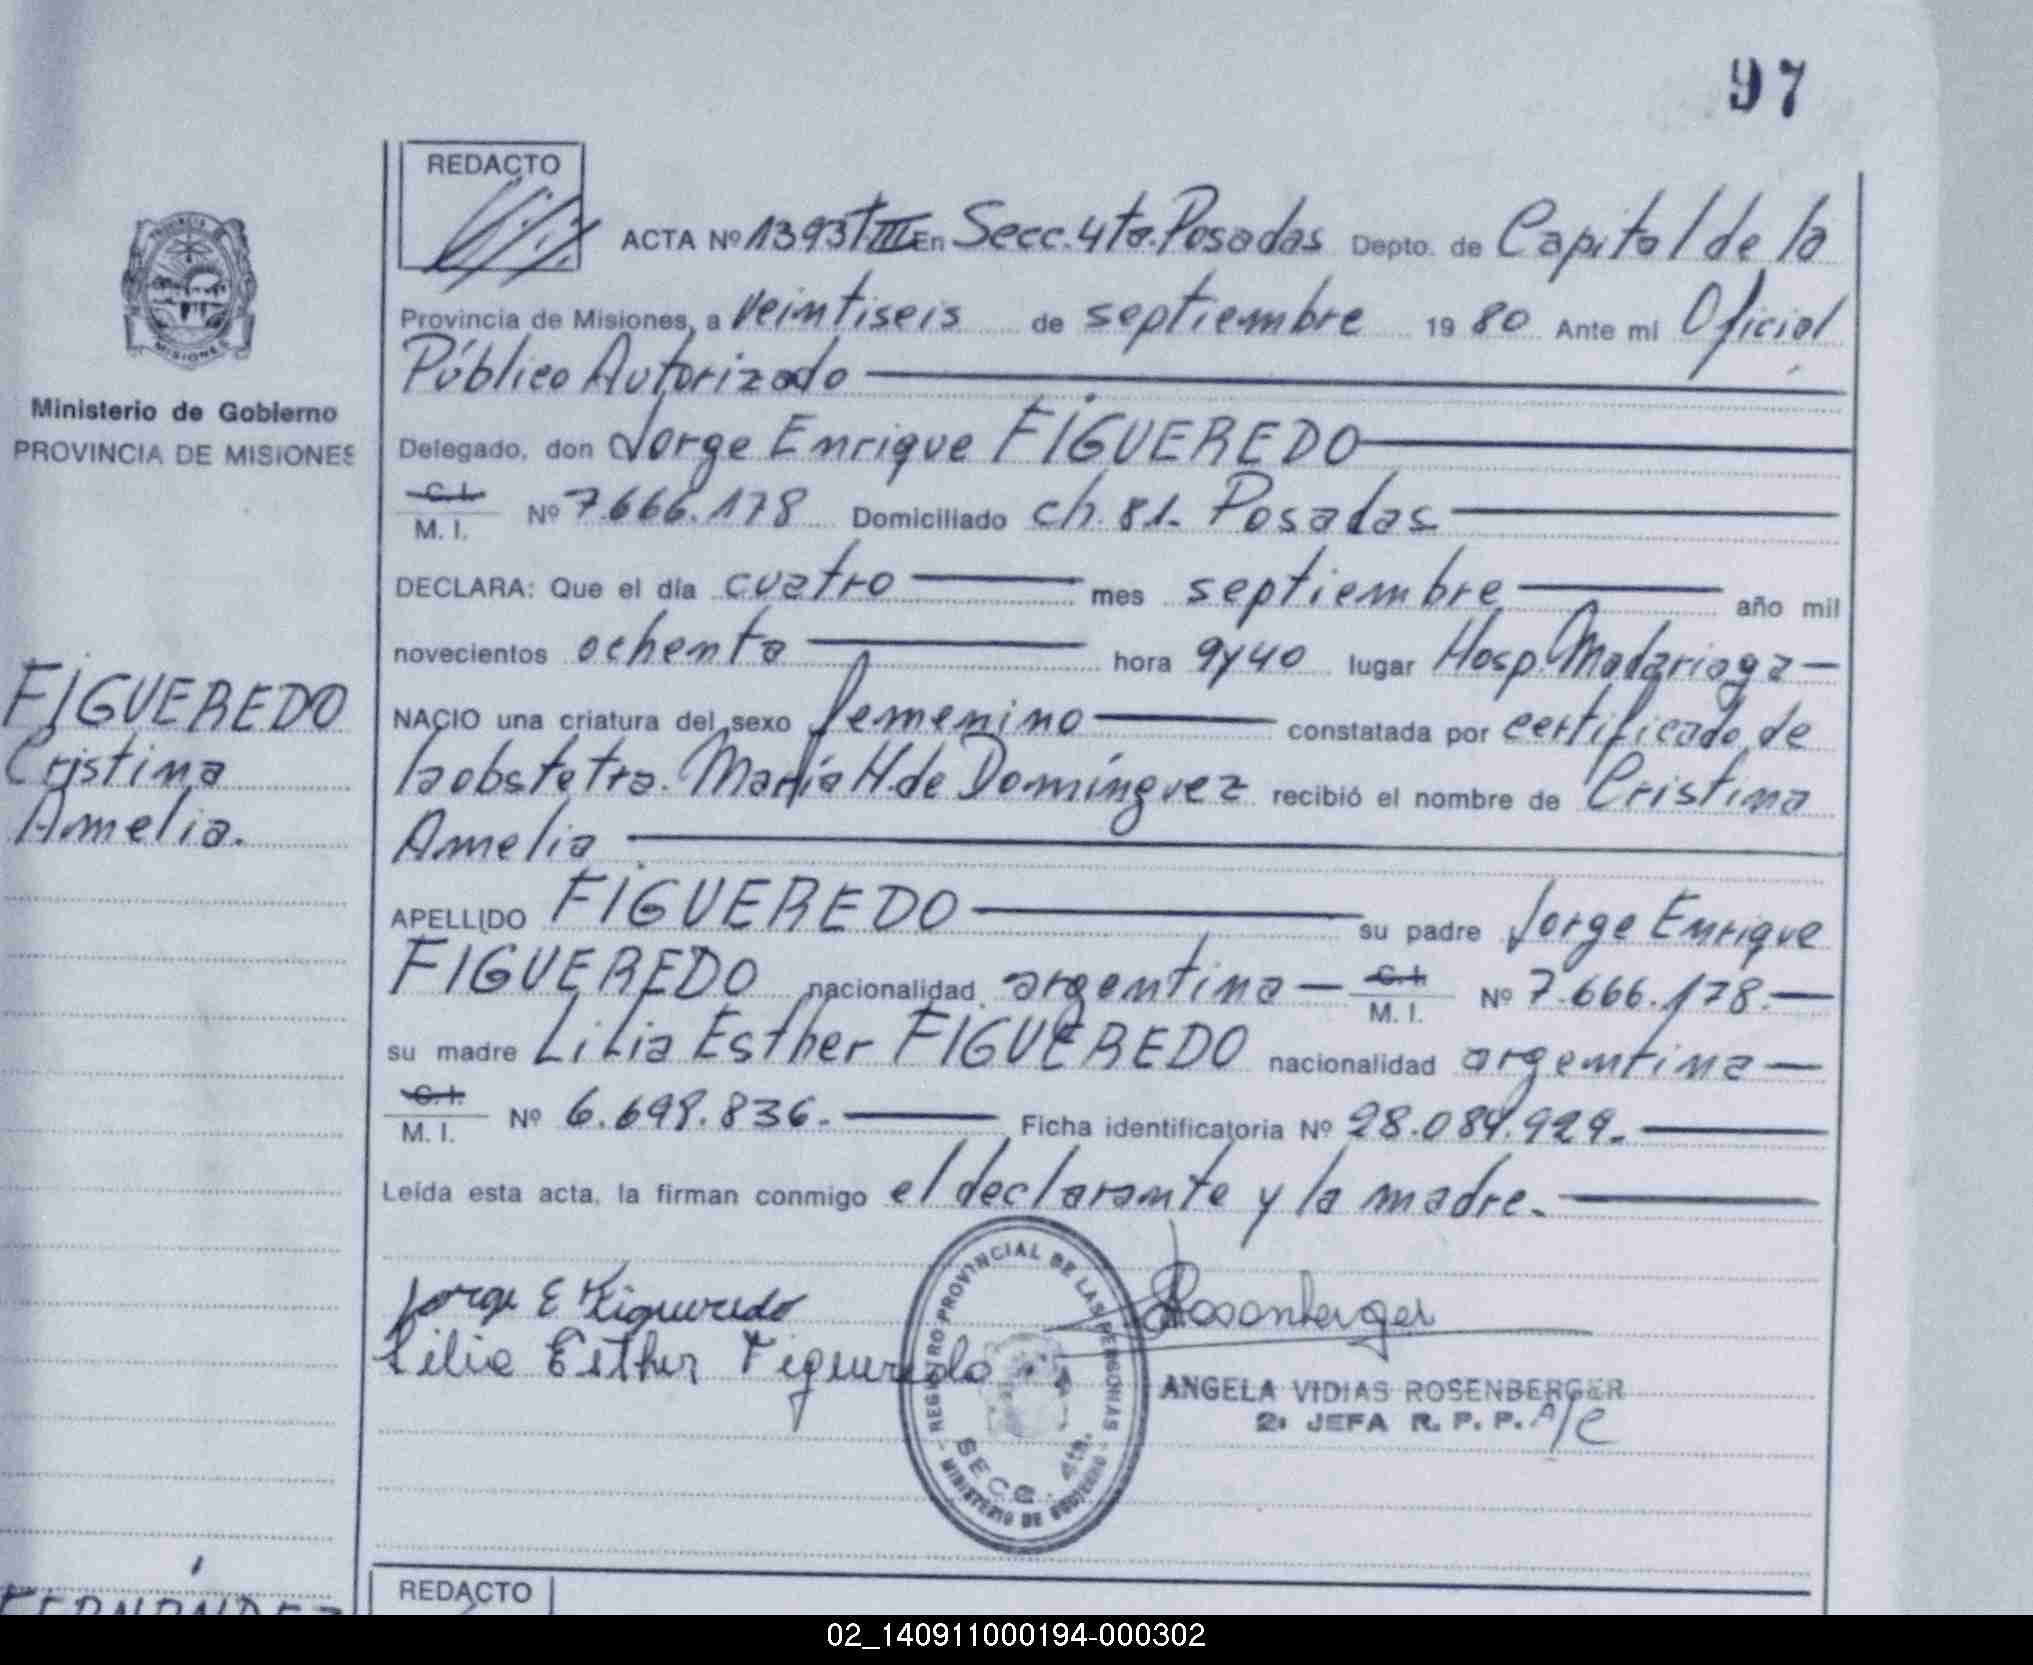 97
REDACTO
ACTA Nº 1393 T III En Secc. 4ta. Posadas Depto. de Capital de la
Provincia de Misiones, a veintiseis de septiembre 1980 Ante mi Oficial
Público Autorizado
Delegado, don Jorge Enrique FIGUEREDO
C. I.
M. I. Nº 7.666.178 Domiciliado ch. 81. Posadas
DECLARA: Que el día cuatro mes septiembre año mil
novecientos ochenta hora 9y40 lugar Hosp. Madariaga
NACIO una criatura del sexo femenino constatada por certificado de
la obstetra. María H. de Domínguez recibió el nombre de Cristina
Amelia
APELLIDO FIGUEREDO su padre Jorge Enrique
FIGUEREDO nacionalidad argentina C. I. M. I. Nº 7.666.178.
su madre Lilia Esther FIGUEREDO nacionalidad argentina
C. I.
M. I. Nº 6.698.836. Ficha identificatoria Nº 28.084.929.
Leída esta acta, la firman conmigo el declarante y la madre.
Jorge E Figueredo
Lilia Esther Figueredo
Rosenberger
ANGELA VIDIAS ROSENBERGER
2ª JEFA R. P. P. A/C
REGISTRO PROVINCIAL DE LAS PERSONAS
SECC. 4ta.
MINISTERIO DE GOBIERNO
PROVINCIA DE
MISIONES
Ministerio de Gobierno
PROVINCIA DE MISIONES
FIGUEREDO
Cristina
Amelia.
FERNÁNDEZ
REDACTO
02_140911000194-000302